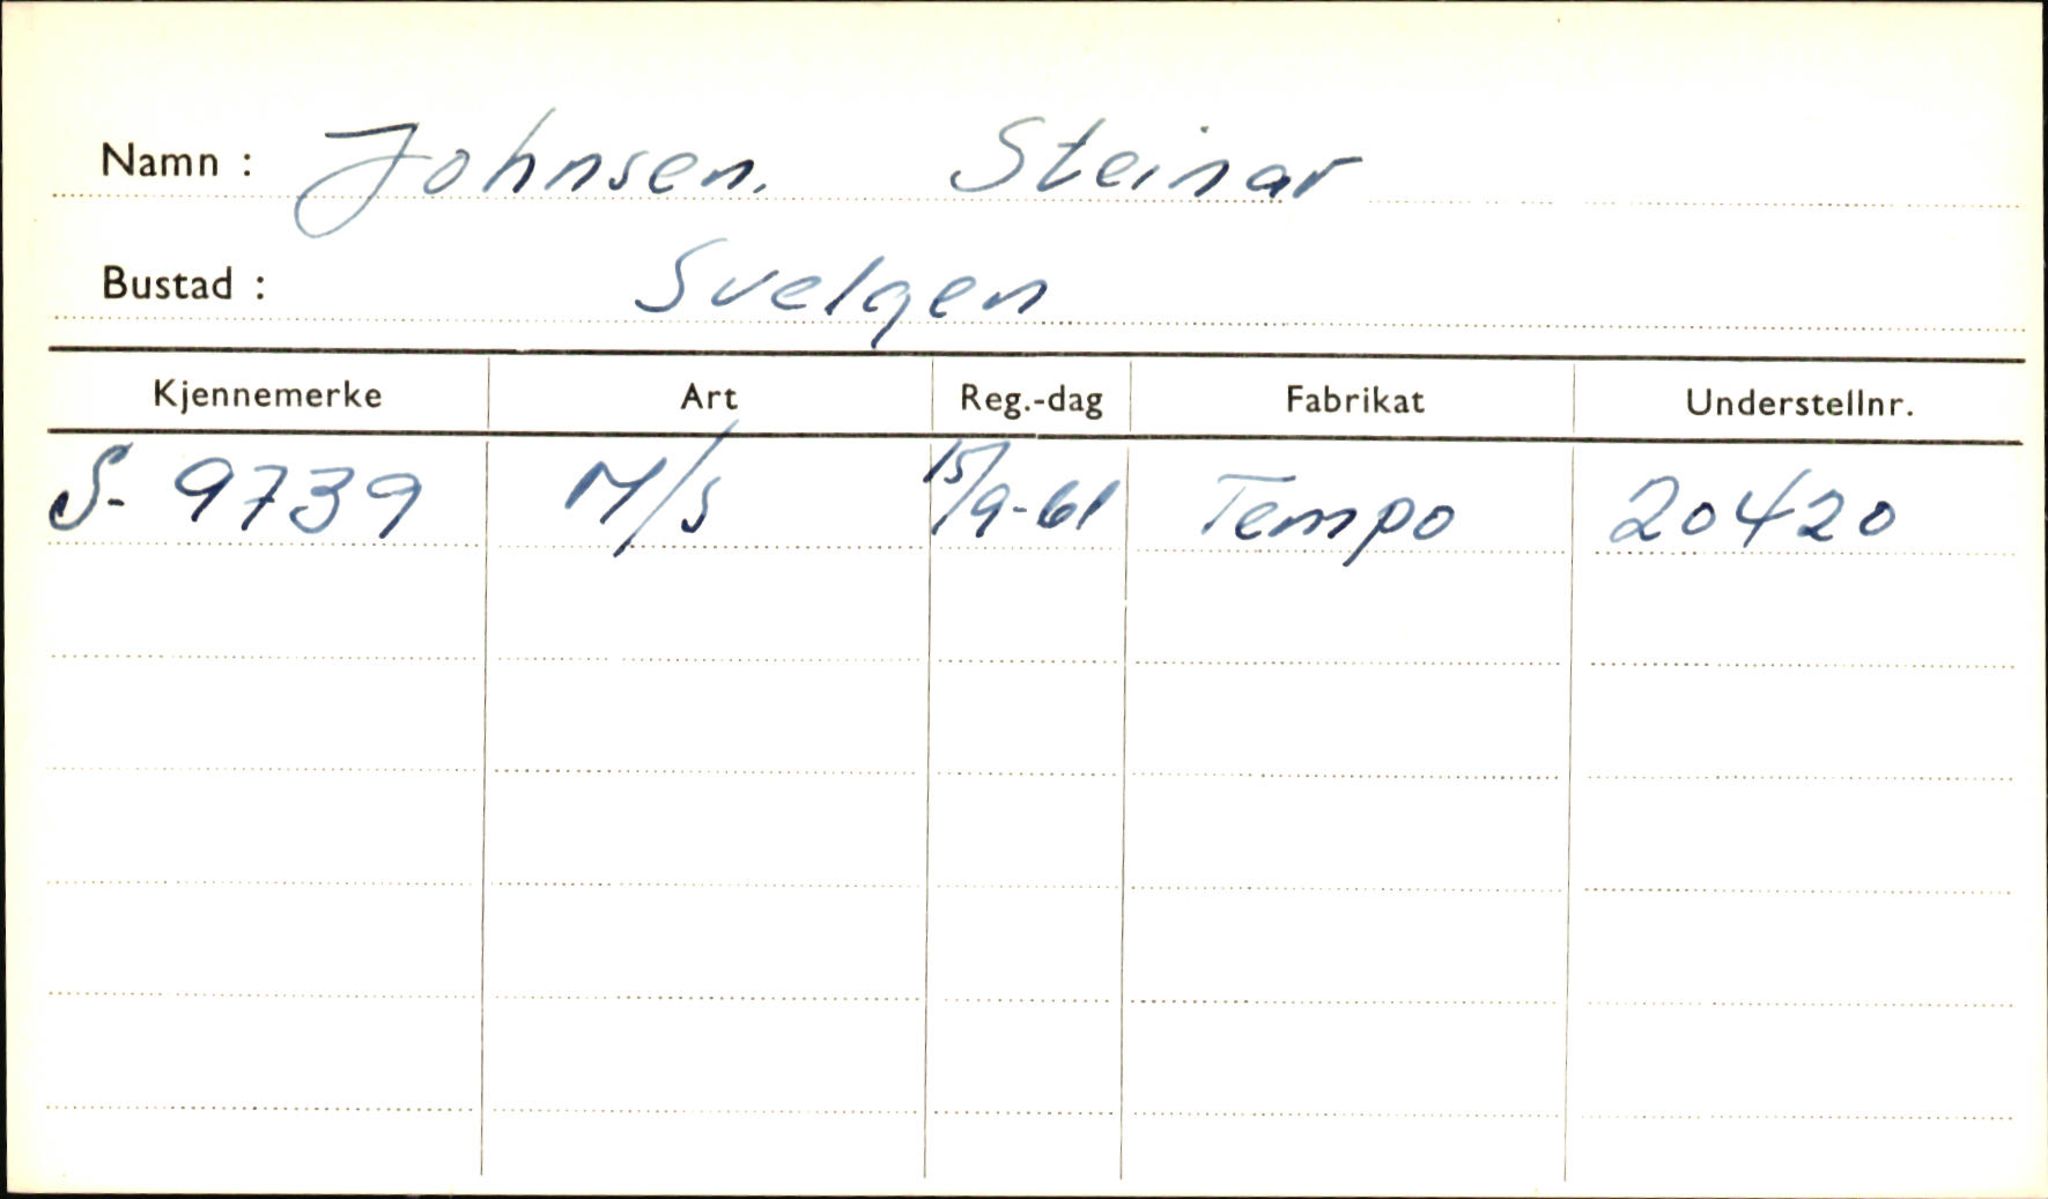 Namn : Johnsen. Steinar
Bustad : Svelgen
Kjennemerke Art Reg.-dag Fabrikat Understellnr.
S- 9739 M/S 15/9-61 Tempo 20420